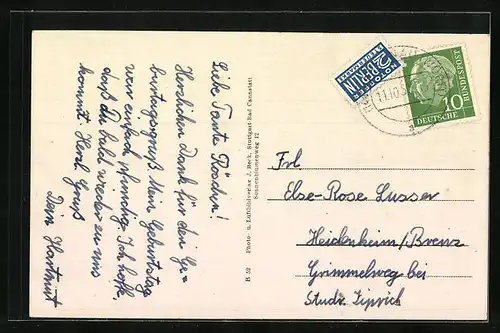 Liebe Tante Röschen!
Herzlichen Dank für den Ge-
burtstagsgruß. Mein Geburtstag
war einfach pfundig. Ich hoffe,
daß Du bald wieder zu uns
kommst. Herzl. Grüß
Dein Hartmut
B 52 Photo- u. Luftbildverlag J. Beck, Stuttgart-Bad Cannstatt
Sonnenblumenweg 12
NOTOPFER
2 BERLIN
STEUERMARKE
11.10.5
DEUTSCHE
BUNDESPOST
10
Frl
Else-Rose Lusser
Heidenheim/Brenz
Grimmelweg bei
Studr.